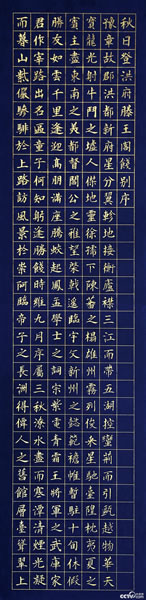 秋日登洪府滕王閣餞別序
豫章故郡洪都新府星分翼軫地接衡廬襟三江而帶五湖控蠻荊而引甌越物華天
寶龍光射牛斗之墟人傑地靈徐孺下陳蕃之榻雄州霧列俊采星馳臺隍枕夷夏之
賓主盡東南之美都督閻公之雅望棨戟遙臨宇文新州之懿範襜帷暫駐十旬休假
勝友如雲千里逢迎高朋滿座騰蛟起鳳孟學士之詞宗紫電青霜王將軍之武庫家
君作宰路出名區童子何知躬逢勝餞時維九月序屬三秋潦水盡而寒潭清煙光凝
而暮山紫儼驂騑於上路訪風景於崇阿臨帝子之長洲得僊人之舊館層巒聳翠上
CCTV.com